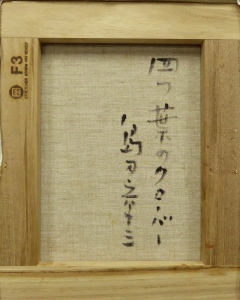 四つ葉のクローバー
島田章三
F3